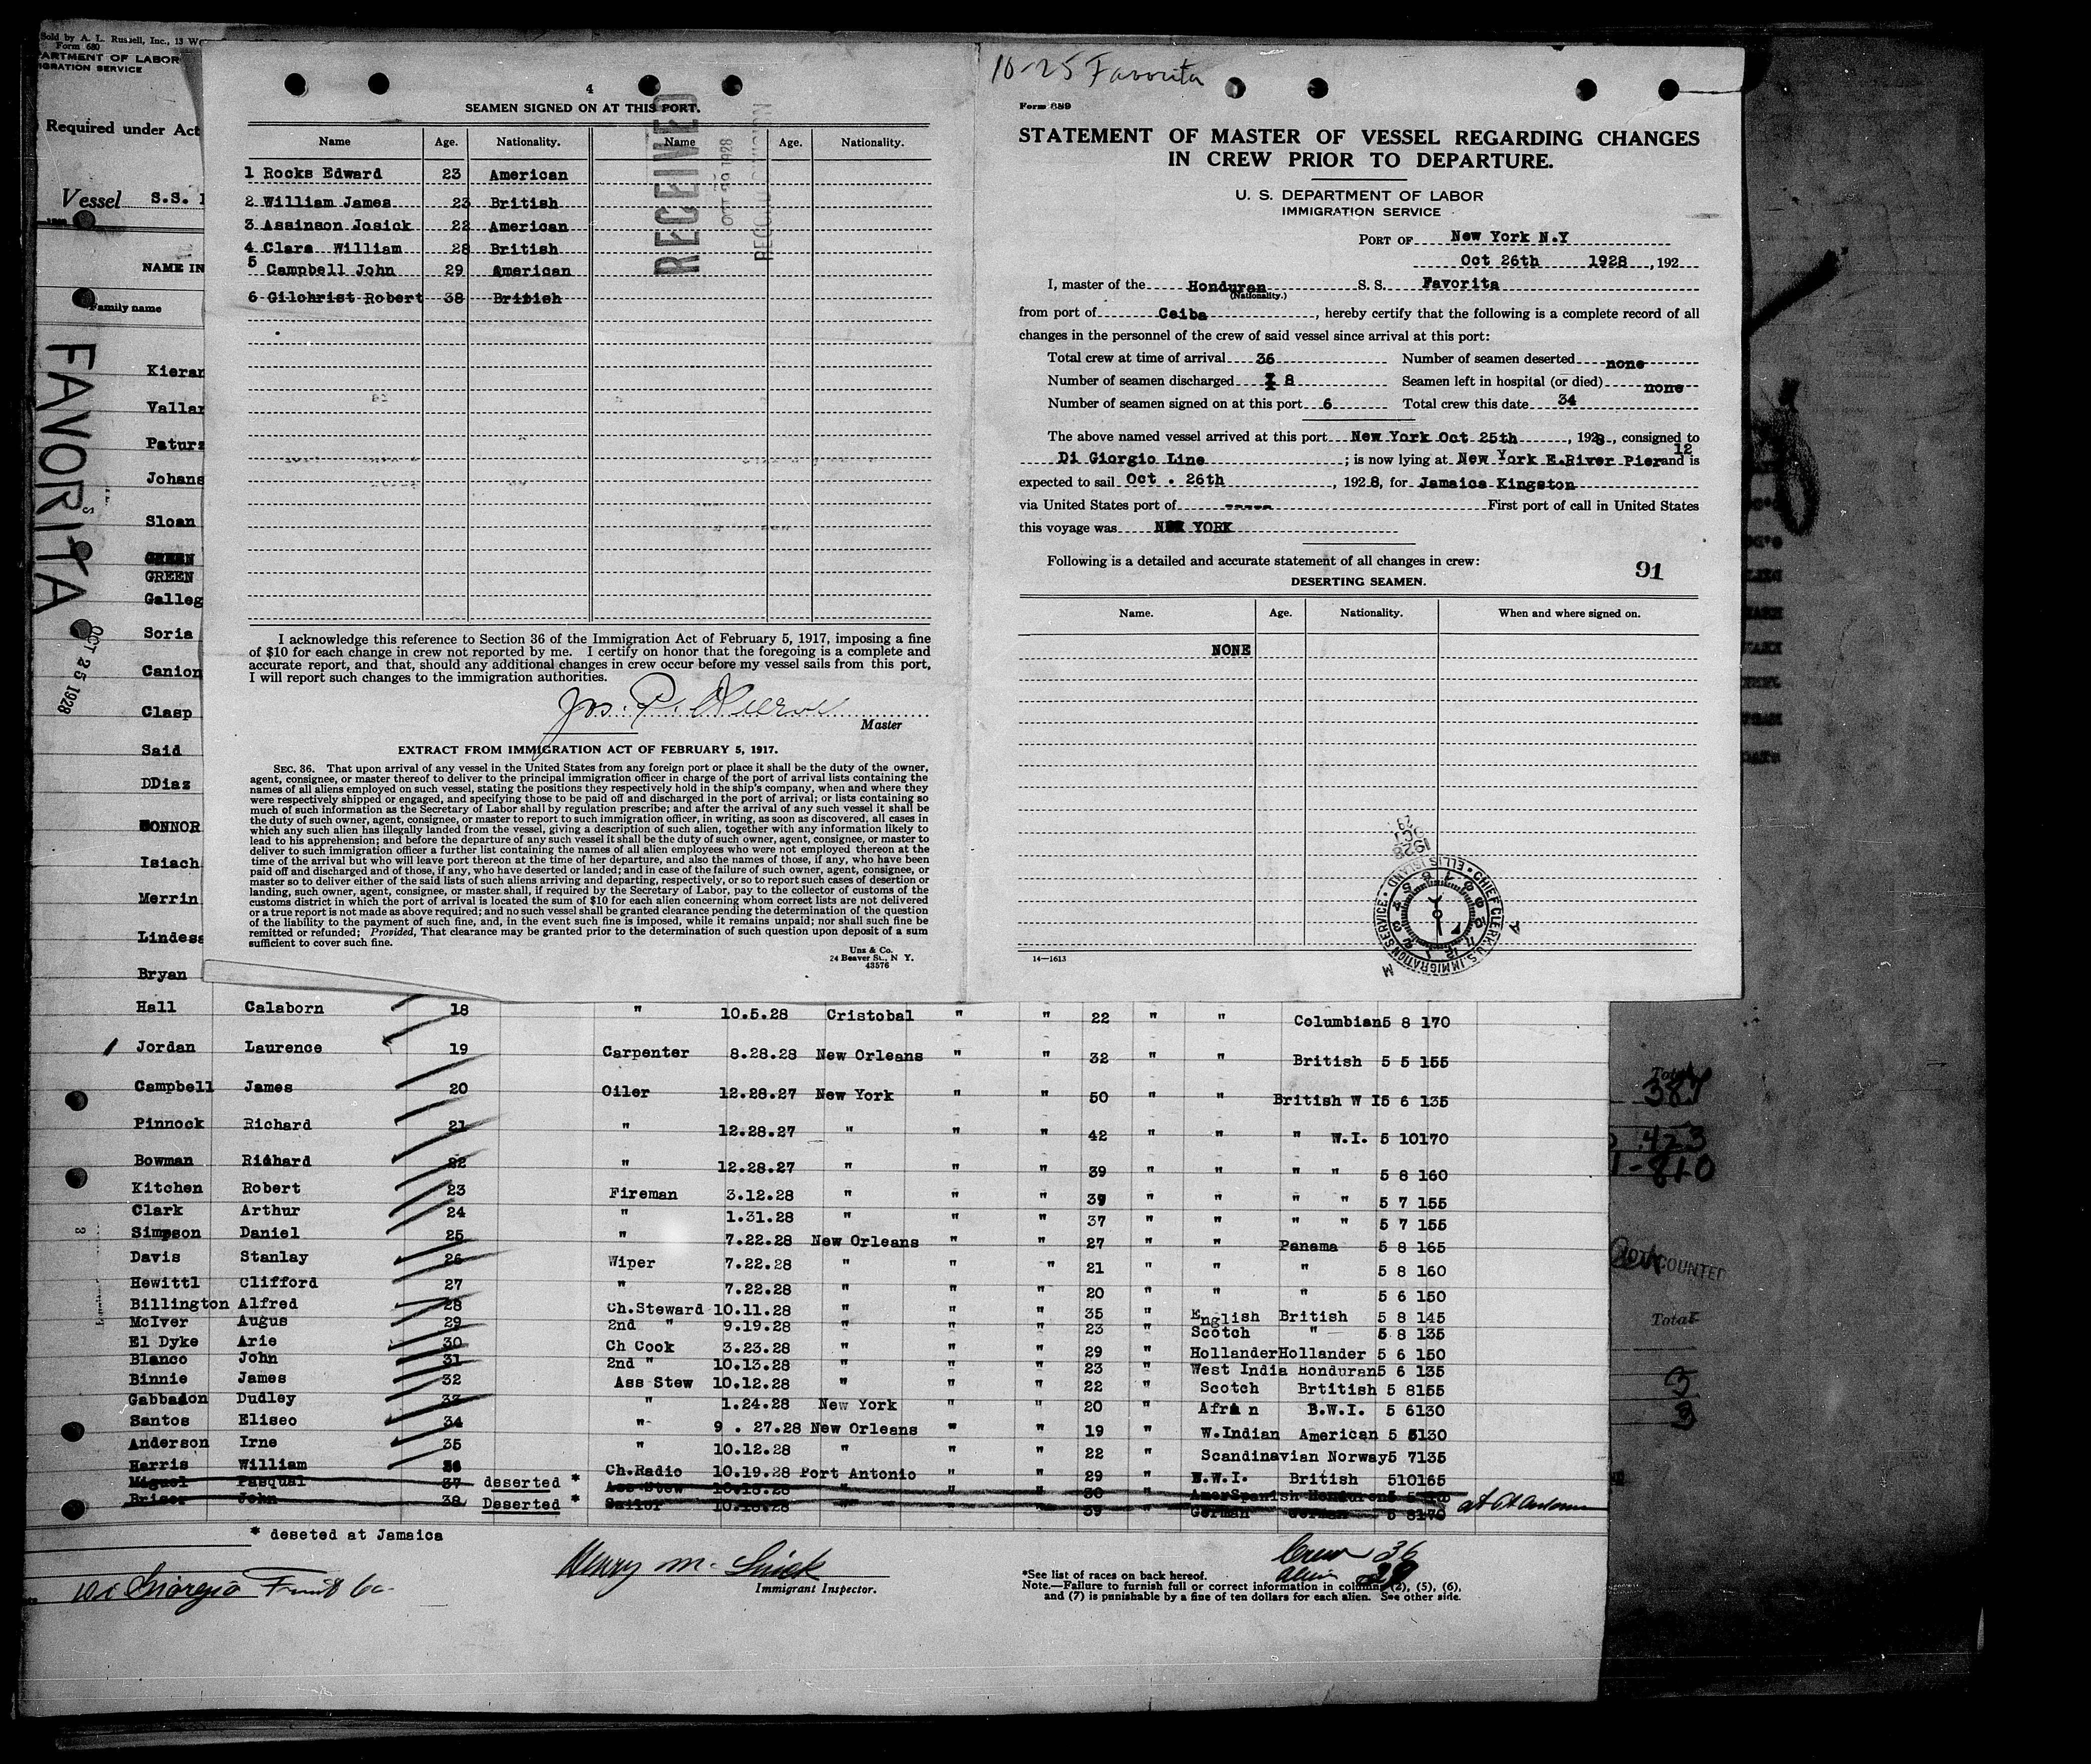 Sold by A. L. Russell, Inc., 13
Form 680
ARTMENT OF LABOR
IGRATION SERVICE
Required under Act
Vessel S.S.
NAME IN
Family name
FAVORITA
OCT 25 1928
Kieran
Vallar
Paturz
Johans
Sloan
GREEN
GREEN
Galleg
Soria
Canion
Clasp
Said
DDiaz
CONNOR
Isiach
Merrin
Lindess
Bryan
4
SEAMEN SIGNED ON AT THIS PORT.
Name Age. Nationality. Name Age. Nationality.
1 Rocks Edward 23 American
2 William James 23 British
3 Assinson Josick 22 American
4 Clara William 28 British
5 Campbell John 29 American
6 Gilchrist Robert 38 British
RECEIVED
OCT 29 1928
I acknowledge this reference to Section 36 of the Immigration Act of February 5, 1917, imposing a fine
of $10 for each change in crew not reported by me. I certify on honor that the foregoing is a complete and
accurate report, and that, should any additional changes in crew occur before my vessel sails from this port,
I will report such changes to the immigration authorities.
Jos. P.
Master
EXTRACT FROM IMMIGRATION ACT OF FEBRUARY 5, 1917.
SEC. 36. That upon arrival of any vessel in the United States from any foreign port or place it shall be the duty of the owner,
agent, consignee, or master thereof to deliver to the principal immigration officer in charge of the port of arrival lists containing the
names of all aliens employed on such vessel, stating the positions they respectively hold in the ship's company, when and where they
were respectively shipped or engaged, and specifying those to be paid off and discharged in the port of arrival; or lists containing so
much of such information as the Secretary of Labor shall by regulation prescribe; and after the arrival of any such vessel it shall be
the duty of such owner, agent, consignee, or master to report to such immigration officer, in writing, as soon as discovered, all cases in
which any such alien has illegally landed from the vessel, giving a description of such alien, together with any information likely to
lead to his apprehension; and before the departure of any such vessel it shall be the duty of such owner, agent, consignee, or master to
deliver to such immigration officer a further list containing the names of all alien employees who were not employed thereon at the
time of the arrival but who will leave port thereon at the time of her departure, and also the names of those, if any, who have been
paid off and discharged and of those, if any, who have deserted or landed; and in case of the failure of such owner, agent, consignee, or
master so to deliver either of the said lists of such aliens arriving and departing, respectively, or so to report such cases of desertion or
landing, such owner, agent, consignee, or master shall, if required by the Secretary of Labor, pay to the collector of customs of the
customs district in which the port of arrival is located the sum of $10 for each alien concerning whom correct lists are not delivered
or a true report is not made as above required; and no such vessel shall be granted clearance pending the determination of the question
of the liability to the payment of such fine, and, in the event such fine is imposed, while it remains unpaid; nor shall such fine be
remitted or refunded; Provided, That clearance may be granted prior to the determination of such question upon deposit of a sum
sufficient to cover such fine.
Unz & Co.
24 Beaver St., N Y.
43576
10-25 Favorita
Form 689
STATEMENT OF MASTER OF VESSEL REGARDING CHANGES
IN CREW PRIOR TO DEPARTURE.
U. S. DEPARTMENT OF LABOR
IMMIGRATION SERVICE
PORT OF New York N.Y
Oct 26th 1928 , 192
I, master of the Honduran S. S. Favorita
(Nationality.)
from port of Ceiba , hereby certify that the following is a complete record of all
changes in the personnel of the crew of said vessel since arrival at this port:
Total crew at time of arrival 36 Number of seamen deserted none
Number of seamen discharged 8 Seamen left in hospital (or died) none
Number of seamen signed on at this port 6 Total crew this date 34
The above named vessel arrived at this port New York Oct 25th , 1928 , consigned to
Di Giorgio Line ; is now lying at New York E.River Pier 12 and is
expected to sail Oct . 26th , 1928, for Jamaica Kingston
via United States port of ----- First port of call in United States
this voyage was NEW YORK
Following is a detailed and accurate statement of all changes in crew:
91
DESERTING SEAMEN.
Name. Age. Nationality. When and where signed on.
NONE
1928
OCT
29
CHIEF CLERK, U.S. IMMIGRATION SERVICE ELLIS ISLAND
14—1613
Hall Calaborn 18 " 10.5.28 Cristobal " " 22 " " Columbian 5 8 170
Jordan Laurence 19 Carpenter 8.28.28 New Orleans " " 32 " " British 5 5 155
Campbell James 20 Oiler 12.28.27 New York " " 50 " " British W I 5 6 135
Pinnock Richard 21 " 12.28.27 " " " 42 " " " W.I. 5 10 170
Bowman Richard 22 " 12.28.27 " " " 39 " " " " 5 8 160
Kitchen Robert 23 Fireman 3.12.28 " " " 39 " " " " 5 7 155
Clark Arthur 24 " 1.31.28 " " " 37 " " " " 5 7 155
Simpson Daniel 25 " 7.22.28 New Orleans " " 27 " " Panama 5 8 165
Davis Stanlay 26 Wiper 7.22.28 " " " 21 " " " 5 8 160
Hewittl Clifford 27 " 7.22.28 " " " 20 " " " 5 6 150
Billington Alfred 28 Ch.Steward 10.11.28 " " " 35 " English British 5 8 145
McIver Augus 29 2nd " 9.19.28 " " " 23 " Scotch " 5 8 135
El Dyke Arie 30 Ch Cook 3.23.28 " " " 29 " Hollander Hollander 5 6 150
Blanco John 31 2nd " 10.13.28 " " " 23 " West India Honduran 5 6 135
Binnie James 32 Ass Stew 10.12.28 " " " 22 " Scotch Brtitish 5 8 155
Gabbadon Dudley 33 " 1.24.28 New York " " 20 " Afr n B.W.I. 5 6 130
Santos Eliseo 34 " 9 . 27.28 New Orleans " " 19 " W.Indian American 5 5 130
Anderson Irne 35 " 10.12.28 " " " 22 " Scandinavian Norway 5 7 135
Harris William 36 Ch.Radio 10.19.28 Port Antonio " " 29 " B.W.I. British 5 10 165
Miguel Pasqual 37 deserted * Ass Stew 10.18.28 " " " 30 " AmerSpanish Honduren 5
Briser John 38 Deserted * Sailor 10.18.28 " " " 39 " German German 5 8 170 at
* deseted at Jamaica
Di Giorgio Fruit Co
Henry M.
Immigrant Inspector.
Crew 36
Alien
*See list of races on back hereof.
Note.—Failure to furnish full or correct information in columns (2), (5), (6),
and (7) is punishable by a fine of ten dollars for each alien. See other side.
Total
387
423
1-810
COUNTED
Total
3
3